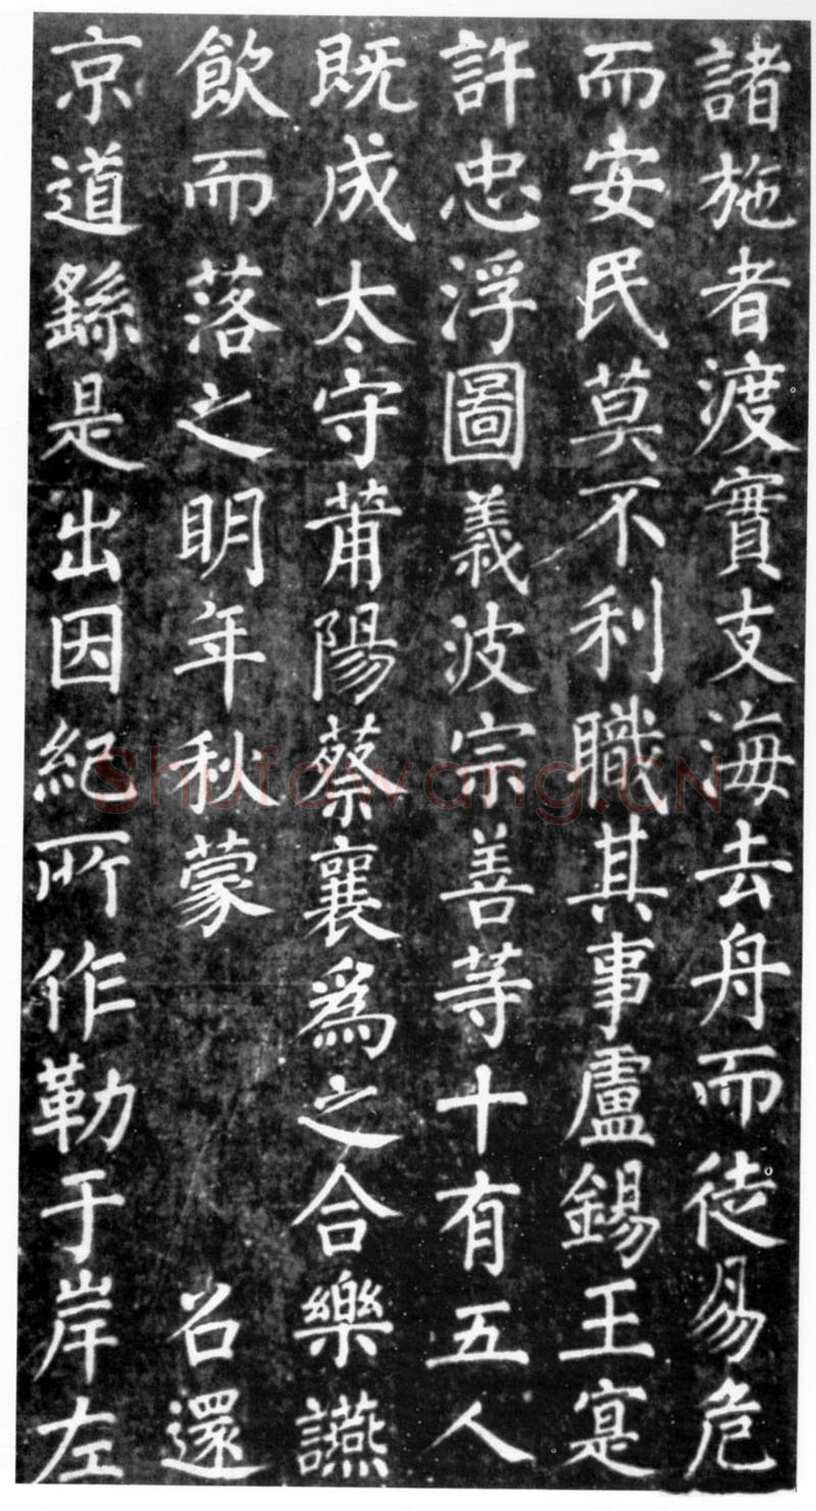 諸施者渡實支海去舟而徒易危
而安民莫不利職其事盧錫王寔
許忠浮圖義波宗善等十有五人
既成太守莆陽蔡襄爲之合樂讌
飲而落之明年秋蒙 召還
京道繇是出因紀所作勒于岸左
Shufawang.CN